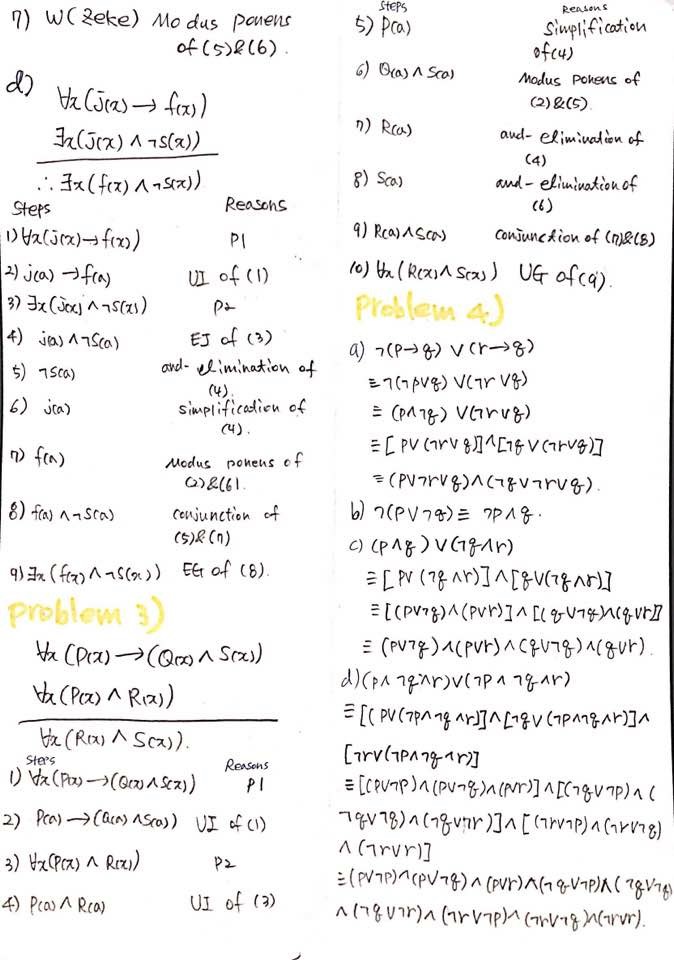 7) W(Zeke) Modus ponens
of (5)&(6).
d)
∀x(j(x) → f(x))
∃x(j(x) ∧ ¬S(x))
∴ ∃x(f(x) ∧ ¬S(x))
Steps Reasons
1) ∀x(j(x) → f(x)) P1
2) j(a) → f(a) UI of (1)
3) ∃x(j(x) ∧ ¬S(x)) P2
4) j(a) ∧ ¬S(a) EI of (3)
5) ¬S(a) and-elimination of
(4).
6) j(a) simplification of
(4).
7) f(a) Modus ponens of
(2)&(6).
8) f(a) ∧ ¬S(a) conjunction of
(5)&(7)
9) ∃x(f(x) ∧ ¬S(x)) EG of (8).
Problem 3)
∀x(P(x) → (Q(x) ∧ S(x))
∀x(P(x) ∧ R(x))
∀x(R(x) ∧ S(x)).
Steps Reasons
1) ∀x(P(x) → (Q(x) ∧ S(x)) P1
2) P(a) → (Q(a) ∧ S(a)) UI of (1)
3) ∀x(P(x) ∧ R(x)) P2
4) P(a) ∧ R(a) UI of (3)
Steps Reasons
5) P(a) Simplification
of (4)
6) Q(a) ∧ S(a) Modus ponens of
(2)&(5).
7) R(a) and-elimination of
(4)
8) S(a) and-elimination of
(6)
9) R(a) ∧ S(a) conjunction of (7)&(8)
10) ∀x(R(x) ∧ S(x)) UG of (9).
Problem 4)
a) ¬(p→q) ∨ (r→q)
≡ ¬(¬p∨q) ∨ (¬r∨q)
≡ (p∧¬q) ∨ (¬r∨q)
≡ [p∨(¬r∨q)] ∧ [¬q∨(¬r∨q)]
≡ (p∨¬r∨q) ∧ (¬q∨¬r∨q).
b) ¬(p∨¬q) ≡ ¬p∧q.
c) (p∧q) ∨ (¬q∧r)
≡ [p∨(¬q∧r)] ∧ [q∨(¬q∧r)]
≡ [(p∨¬q)∧(p∨r)] ∧ [(q∨¬q)∧(q∨r)]
≡ (p∨¬q)∧(p∨r)∧(q∨¬q)∧(q∨r).
d) (p∧¬q∧r)∨(¬p∧¬q∧r)
≡ [(p∨(¬p∧¬q∧r)] ∧ [¬q∨(¬p∧¬q∧r)] ∧
[¬r∨(¬p∧¬q∧r)]
≡ [(p∨¬p)∧(p∨¬q)∧(p∨r)] ∧ [(¬q∨¬p)∧(
¬q∨¬q)∧(¬q∨¬r)] ∧ [(¬r∨¬p)∧(¬r∨¬q)
∧(¬r∨r)]
≡ (p∨¬p)∧(p∨¬q)∧(p∨r)∧(¬q∨¬p)∧(¬q∨¬q)
∧(¬q∨¬r)∧(¬r∨¬p)∧(¬r∨¬q)∧(¬r∨r).